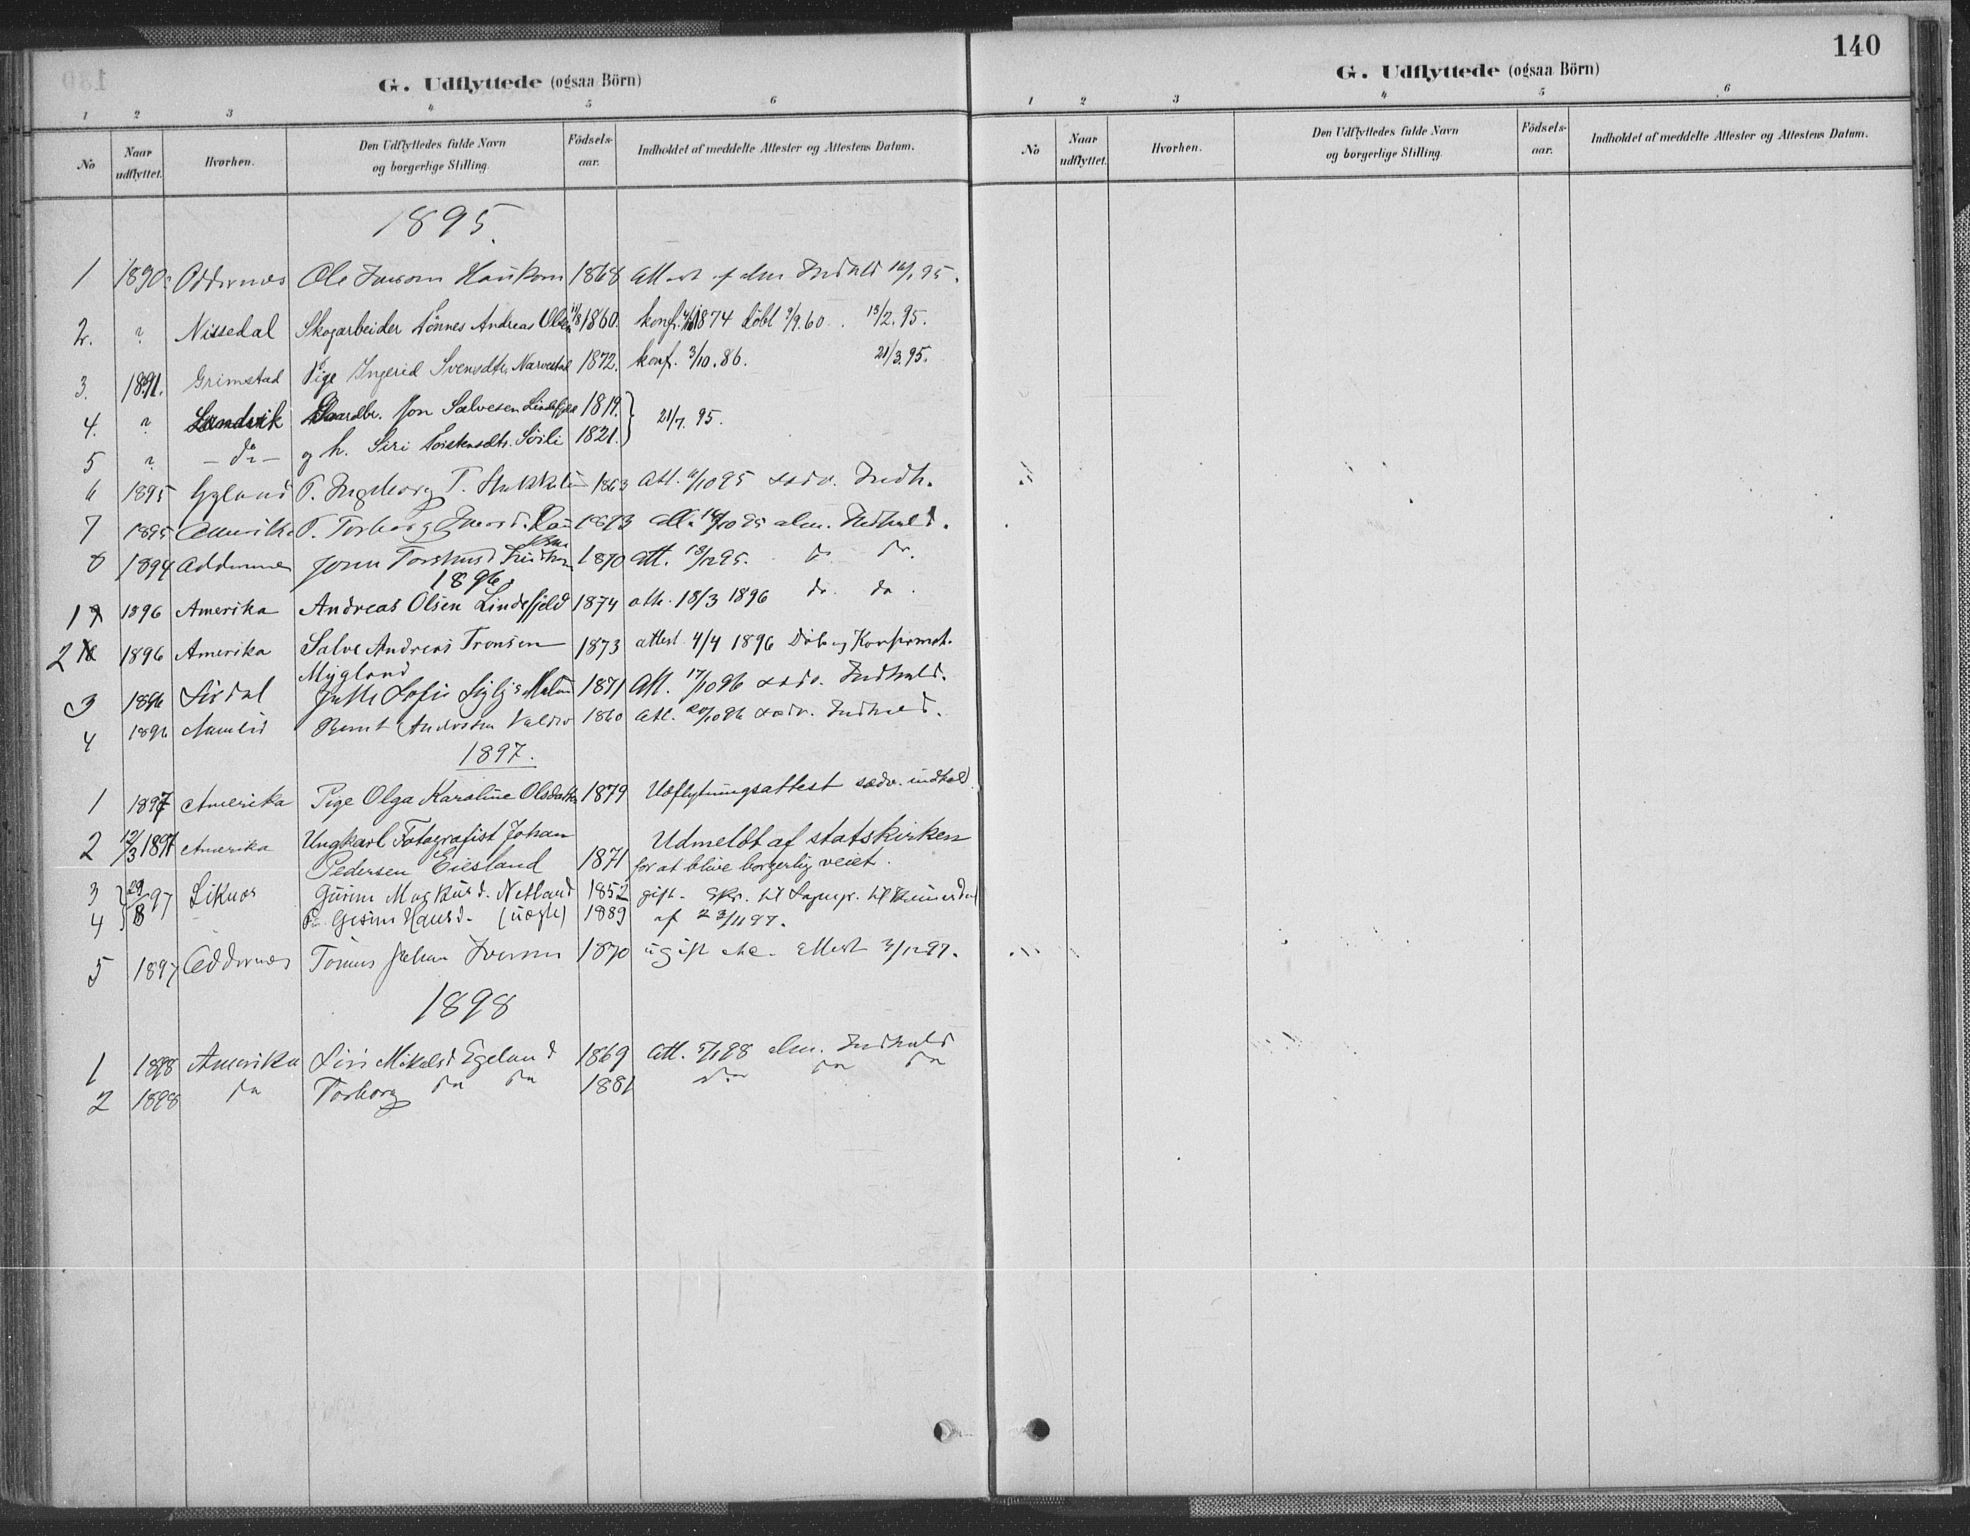 G. Udflyttede (ogsaa Börn)
1 2 3 4 5 6
No
Naar udflyttet.
Hvorhen.
Den Udflyttedes fulde Navn og borgerlige Stilling.
Födsels-aar.
Indholdet af meddelte Attester og Attestens Datum.
1895.
1 1890 Oddernes Ole 1868 Attest alm. Indhold 95.
2. " Nissedal Skogarbeider Tönnes Andreas Olsen 1860. konf. 1874 döbt 9/9.60. 13/2.95.
3. 1891. Grimstad Pige Ingerid Svensdtr. Narvestad 1872. konf. 3/10.86. 21/3.95.
4. " Landvik Gaardbr. Jon Salvesen Lindefjeld 1819. } 21/7.95.
5 " - do - og h. Siri Torstensdtr. 1821.
6 1895 Gyland P. Ingeborg T. 1863 Att. 95 sedv. Indh.
7 1895 Amerika P. Torborg 1873 Att. 95 alm. Indhold.
8 1894 Oddernes 1870 Att. 95. do do.
1896.
1 1896 Amerika Andreas Olsen Lindefjeld 1874 att. 18/3 1896 do do.
2 1896 Amerika Salve Andreas Tronsen 1873 attest 4/4 1896 Daab og Konfirmat.
Mygland
3 1896 Sirdal Sofie 1871 Att. 17/10 96 sedv. Indhold.
4 1896 Bernt 1860 Att. 20/10 96 sedv. Indhold.
1897.
1 1897 Amerika Pige Olga Karoline Olsdatter 1879 Udflytningsattest sædv. indhold
2 12/3 1897 Amerika Ungkarl Fotografist Johan Udmeldt af statskirken
Pedersen Eiesland 1871 for at blive borgerlig veiet.
3 29/8 97 Liknes Gurine Markusd. Netland 1852 gift.
4 Gesine Hansd. (uægte) 1889 af 23/11 97.
5 1897 Oddernes Johan 1870 ugift Attest 97.
1898
1 1898 Amerika Siri Mikalsd Egeland 1869 Att. 98 alm. Indhold
2 1898 do Torborg do do 1881 do do do
140
G. Udflyttede (ogsaa Börn)
1 2 3 4 5 6
No
Naar udflyttet.
Hvorhen.
Den Udflyttedes fulde Navn og borgerlige Stilling.
Födsels-aar.
Indholdet af meddelte Attester og Attestens Datum.